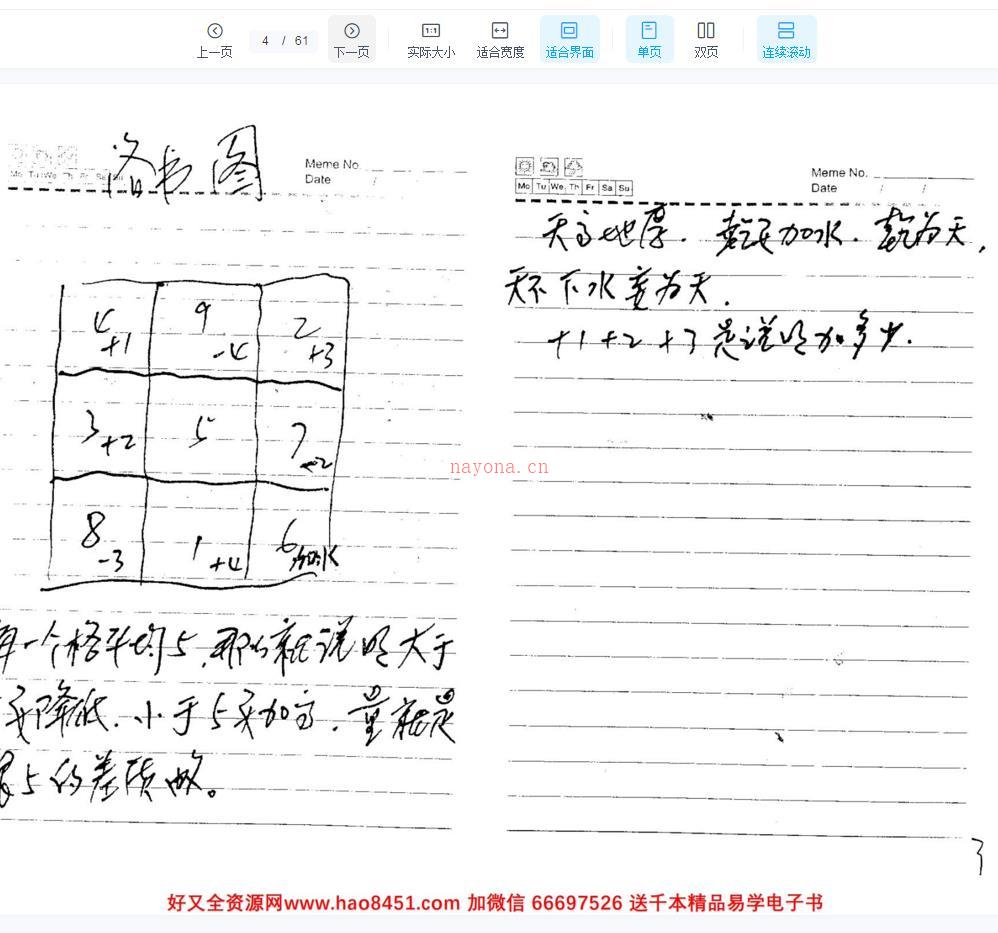 上一页
4 / 61
下一页
实际大小
适合宽度
适合界面
单页
双页
连续滚动
洛书图
Meme No.
Date / 
Mo Tu We Th Fr Sa Su
4 +1
9 -4
2 +3
3 +2
5
7 -2
8 -3
1 +4
6 加水
每一个格平均5,那么就说明大于
要降低.小于5要加高.量就是
跟5的差质做。
Mo Tu We Th Fr Sa Su
Meme No.
Date / /
天高地厚.乾是加水.乾为天,
天不下水变为天.
+1 +2 +3 是说明加多少.
3
nayona.cn
好又全资源网www.hao8451.com 加微信 66697526 送千本精品易学电子书